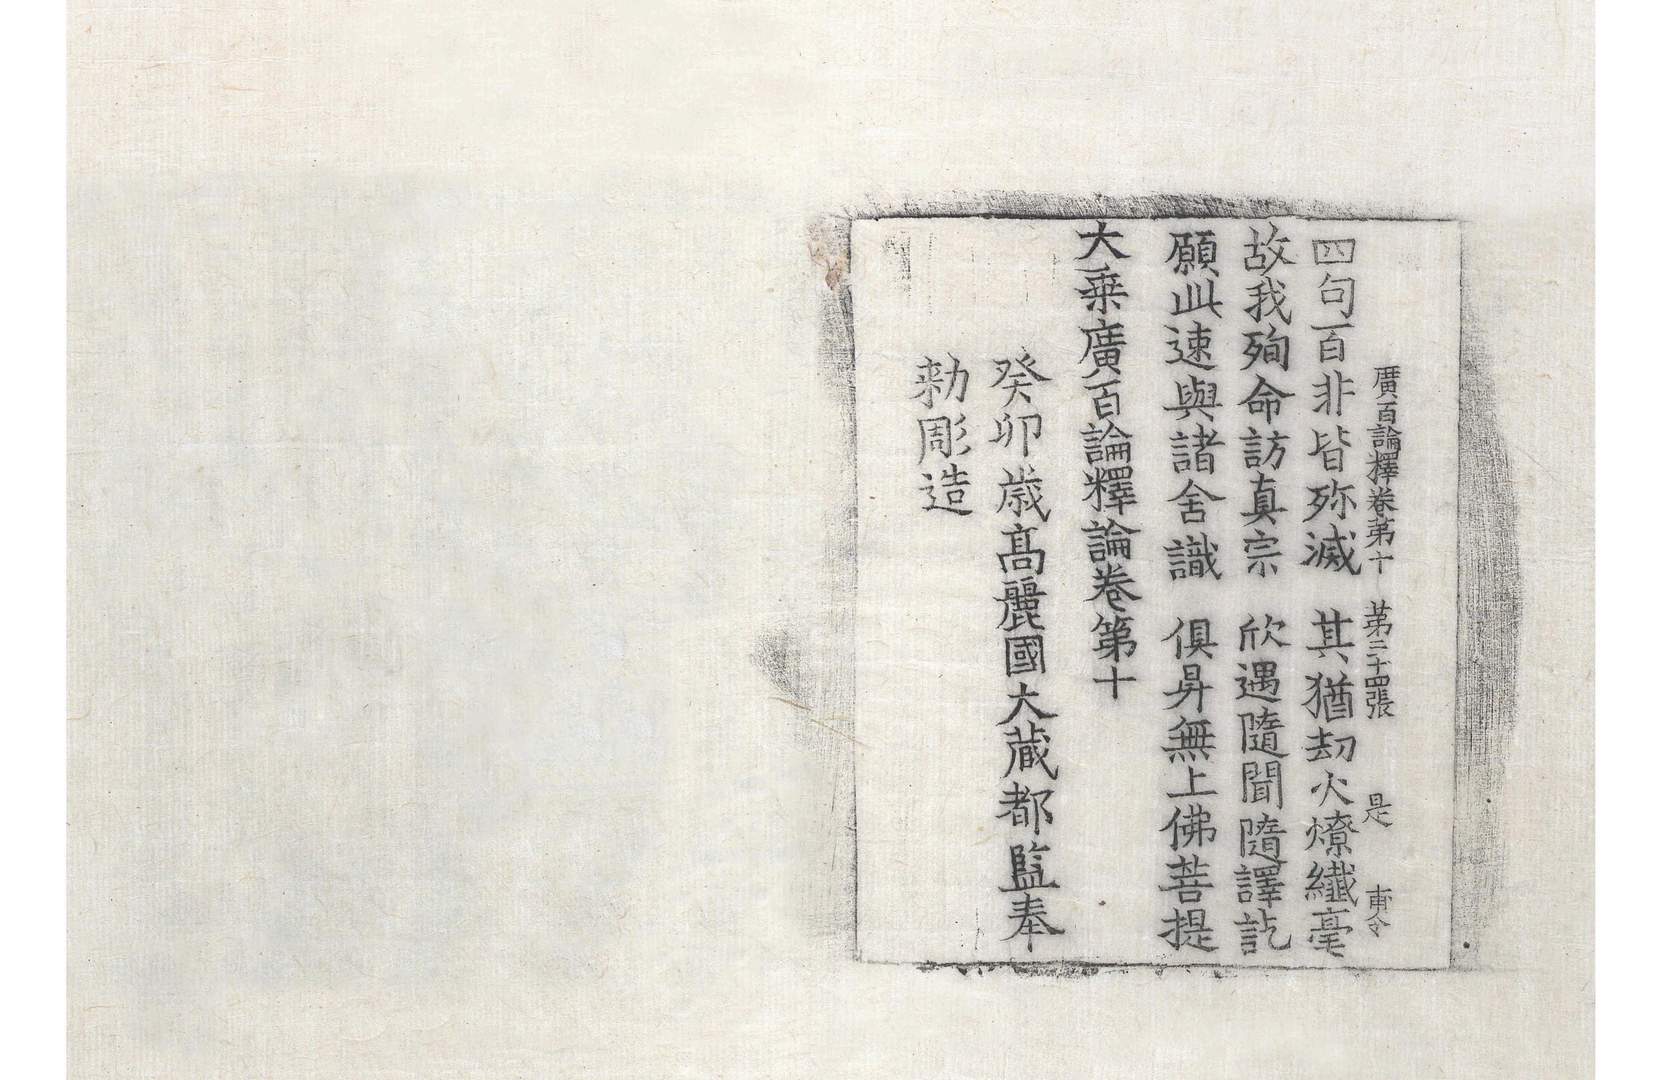 廣百論釋卷苐十 苐三十四張 是 甫令
四句百非皆殄滅 其猶劫火燎纖毫
故我殉命訪真宗 欣遇隨聞隨譯訖
願此速與諸舍識 俱昇無上佛菩提
大乗廣百論釋論卷第十
癸卯歲髙麗國大藏都監奉
勑彫造